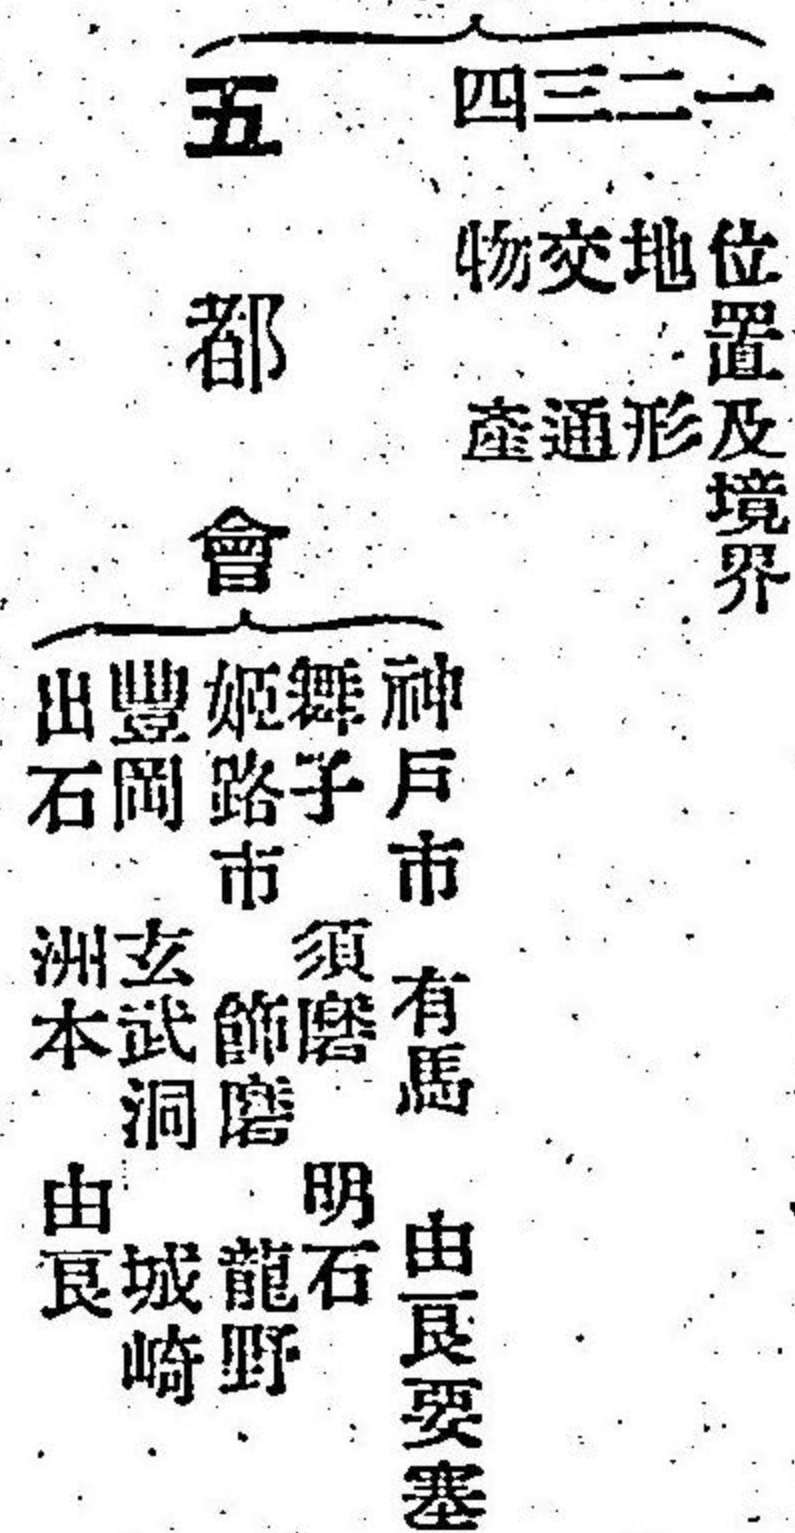 一 位置及境界
二 地形
三 交通
四 物產
五 都會
神戶市 有馬 由良要塞
舞子 須磨 明石
姬路市 飾磨 龍野
豐岡 玄武洞 城崎
出石 洲本 由良